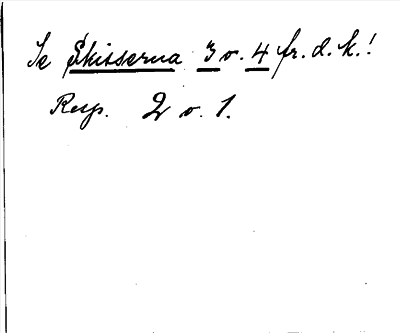 Se Skisserna 3 o. 4 fr. d. k.!
Resp. 2 o. 1.